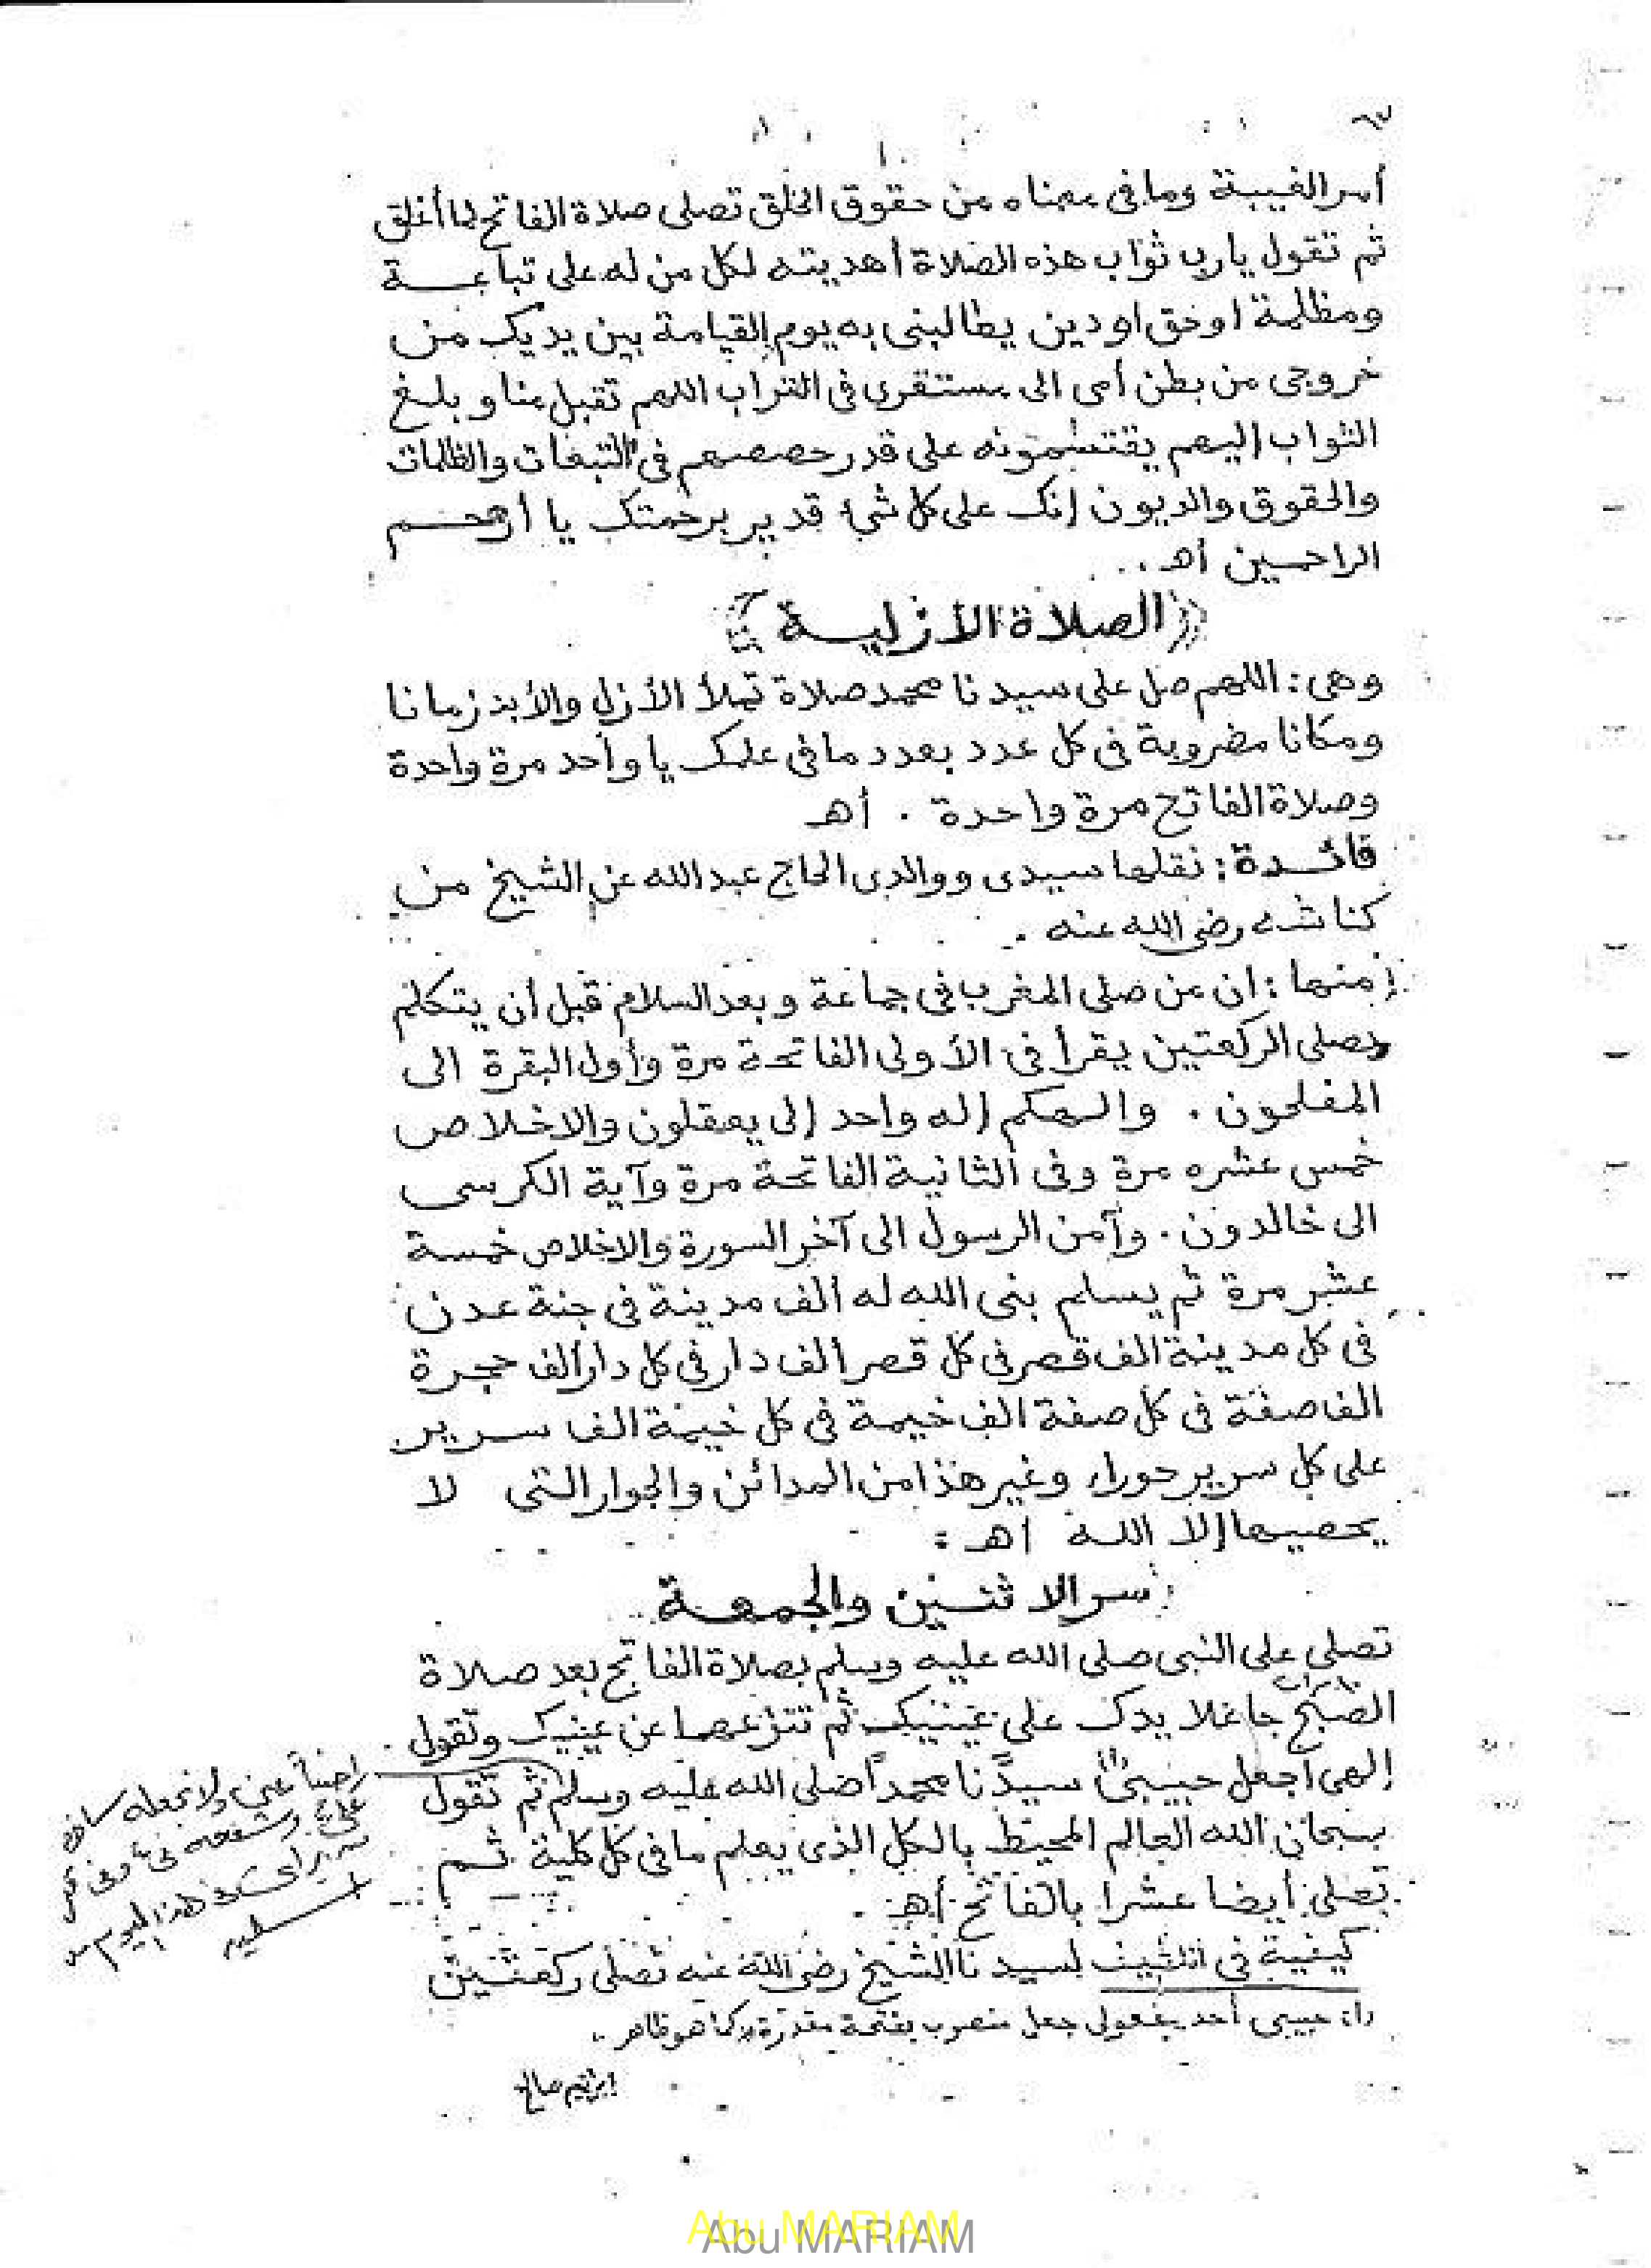 أمر الغيبة وما فى معناه من حقوق الخلق تصلى صلاة الفاتح لما أغلق
ثم تقول يا رب ثواب هذه الصلاة أهديته لكل من له على تباعة
ومظلمة او حق او دين يطالبنى به يوم القيامة بين يديك من
خروجى من بطن أمى الى مستقرى فى التراب اللهم تقبل منا وبلغ
الثواب إليهم يقتسمونه على قدر حصصهم فى التبعات والظلمات
والحقوق والديون إنك على كل شىء قدير برحمتك يا أرحم
الراحمين أهـ ..
الصلاة الأزلية
وهى: اللهم صل على سيدنا محمد صلاة تملأ الأزل والأبد زمانا
ومكانا مضروبة فى كل عدد بعدد ما فى علمك يا واحد مرة واحدة
وصلاة الفاتح مرة واحدة . أهـ
فائدة: نقلها سيدى ووالدى الحاج عبد الله عن الشيخ من
كناشه رضى الله عنه .
منها: ان من صلى المغرب فى جماعة وبعد السلام قبل أن يتكلم
يصلى الركعتين يقرأ فى الأولى الفاتحة مرة وأول البقرة الى
المفلحون . وإلهكم إله واحد إلى يعقلون والاخلاص
خمس عشره مرة وفى الثانية الفاتحة مرة وآية الكرسى
الى خالدون . وآمن الرسول الى آخر السورة والاخلاص خمسة
عشر مرة ثم يسلم بنى الله له ألف مدينة فى جنة عدن
فى كل مدينة الف قصر فى كل قصر ألف دار فى كل دار ألف حجرة
الف صفة فى كل صفة الف خيمة فى كل خيمة الف سرير
على كل سرير حوراء وغير هذا من المدائن والجوار التى لا
يحصيها إلا الله اهـ .
سر الاثنين والجمعة
تصلى على النبى صلى الله عليه وسلم بصلاة الفاتح بعد صلاة
الصبح جاعلا يدك على عينيك ثم تنزعها عن عينيك وتقول .
إلهى اجعل حبيبى سيدنا محمداً صلى الله عليه وسلم ثم تقول
سبحان الله العالم المحيط بالكل الذى يعلم ما فى كل كلية ثم
تصلى أيضا عشرا بالفاتح أهـ .
عنى ولا تجعله
فى هذا اليوم
كيفية فى لسيدنا الشيخ رضى الله عنه تصلى ركعتين
حبيبى أحد مفعولى جعل منصوب بفتحة مقدرة كما هو ظاهر .
ابراهيم صالح
Abu MARIAM